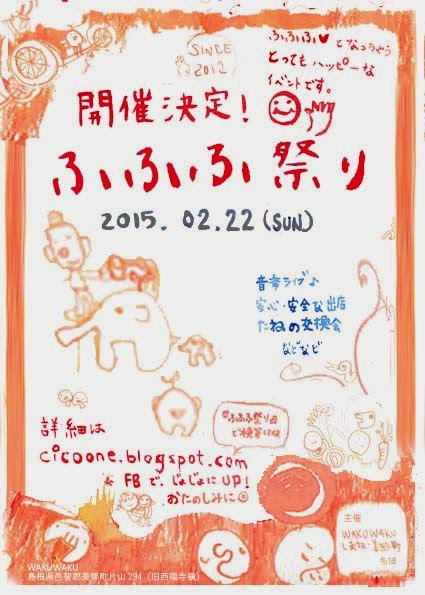 SINCE
2012
ふふふ♥となっちゃう
とってもハッピーな
イベントです。
開催決定！
ふふふ祭り
2015. 02.22 (SUN)
音楽ライブ♪
安心・安全な出店
たねの交換会
などなど
詳細は
『ふふふ祭り』
で検索してね
cicoone.blogspot.com
& FBで、じょじょにUP!
おたのしみに
主催
WAKUWAKU
しまね・美郷町
WAKUWAKU
島根県邑智郡美郷町片山 294（旧西福寺横）